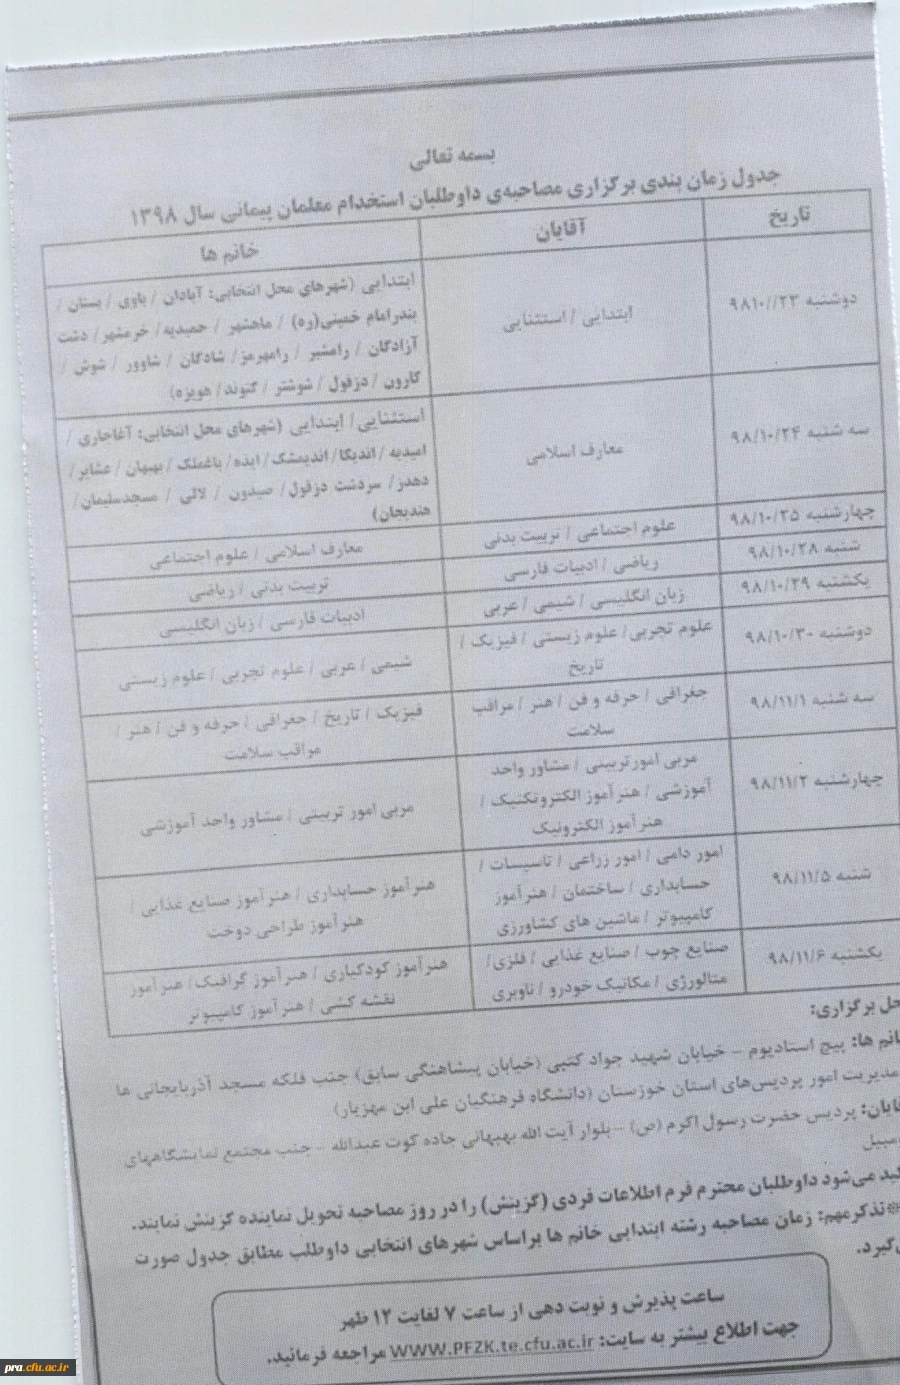 بسمه تعالی
جدول زمان بندی برگزاری مصاحبه‌ی داوطلبان استخدام معلمان پیمانی سال ۱۳۹۸
تاریخ
آقایان
خانم ها
دوشنبه ۹۸۱۰//۲۳
ابتدایی / استثنایی
ابتدایی (شهرهای محل انتخابی: آبادان / باوی / بستان /
بندرامام خمینی(ره) / ماهشهر / حمیدیه/ خرمشهر/ دشت
آزادگان / رامشیر / رامهرمز/ شادگان / شاوور / شوش /
کارون / دزفول / شوشتر / گتوند/ هویزه)
سه شنبه ۹۸/۱۰/۲۴
معارف اسلامی
استثنایی/ ابتدایی (شهرهای محل انتخابی: آغاجاری /
امیدیه / اندیکا/ اندیمشک / ایذه/ باغملک / بهبهان / عشایر/
دهدز/ سردشت دزفول/ صیدون / لالی / مسجدسلیمان/
هندیجان)
چهارشنبه ۹۸/۱۰/۲۵
علوم اجتماعی / تربیت بدنی
معارف اسلامی / علوم اجتماعی
شنبه ۹۸/۱۰/۲۸
ریاضی / ادبیات فارسی
تربیت بدنی / ریاضی
یکشنبه ۹۸/۱۰/۲۹
زبان انگلیسی / شیمی / عربی
ادبیات فارسی / زبان انگلیسی
دوشنبه ۹۸/۱۰/۳۰
علوم تجربی/ علوم زیستی / فیزیک /
تاریخ
شیمی / عربی / علوم تجربی / علوم زیستی
سه شنبه ۹۸/۱۱/۱
جغرافی / حرفه و فن / هنر / مراقب
سلامت
فیزیک / تاریخ / جغرافی / حرفه و فن / هنر /
مراقب سلامت
چهارشنبه ۹۸/۱۱/۲
مربی امورتربیتی / مشاور واحد
آموزشی / هنرآموز الکتروتکنیک /
هنرآموز الکترونیک
مربی امور تربیتی / مشاور واحد آموزشی
شنبه ۹۸/۱۱/۵
امور دامی / امور زراعی / تاسیسات /
حسابداری / ساختمان / هنرآموز
کامپیوتر / ماشین های کشاورزی
هنرآموز حسابداری / هنرآموز صنایع غذایی /
هنرآموز طراحی دوخت
یکشنبه ۹۸/۱۱/۶
صنایع چوب / صنایع غذایی / فلزی/
متالورژی / مکانیک خودرو / ناوبری
هنرآموز کودکیاری / هنرآموز گرافیک/ هنرآموز
نقشه کشی / هنرآموز کامپیوتر
حل برگزاری:
انم ها: پیچ استادیوم – خیابان شهید جواد کتبی (خیابان پیشاهنگی سابق) جنب فلکه مسجد آذربایجانی ها
مدیریت امور پردیس‌های استان خوزستان (دانشگاه فرهنگیان علی ابن مهزیار)
قایان: پردیس حضرت رسول اکرم (ص) – بلوار آیت الله بهبهانی جاده کوت عبدالله – جنب مجتمع نمایشگاههای
ومبیل
کید می‌شود داوطلبان محترم فرم اطلاعات فردی (گزینش) را در روز مصاحبه تحویل نماینده گزینش نمایند.
※تذکرمهم: زمان مصاحبه رشته ابتدایی خانم ها براساس شهرهای انتخابی داوطلب مطابق جدول صورت
ی‌گیرد.
ساعت پذیرش و نوبت دهی از ساعت ۷ لغایت ۱۲ ظهر
جهت اطلاع بیشتر به سایت: WWW.PFZK.te.cfu.ac.ir مراجعه فرمائید.
pra.cfu.ac.ir